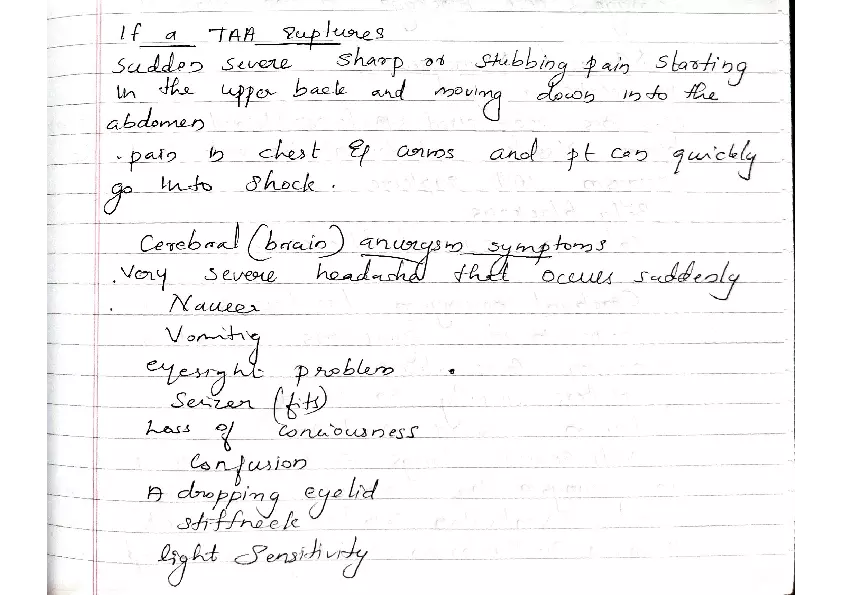 If a TAA ruptures
sudden severe sharp or stubbing pain starting
in the upper back and moving down into the
abdomen
. pain in chest & arms and pt can quickly
go into shock .
Cerebral (brain) anurysm symptoms
. Very severe headache that occurs suddenly
. Nauser
Vomitig
eyesight problem .
Seizer (fits)
Loss of conciousness
Confusion
A dropping eyelid
stiffneck
light Sensitivity